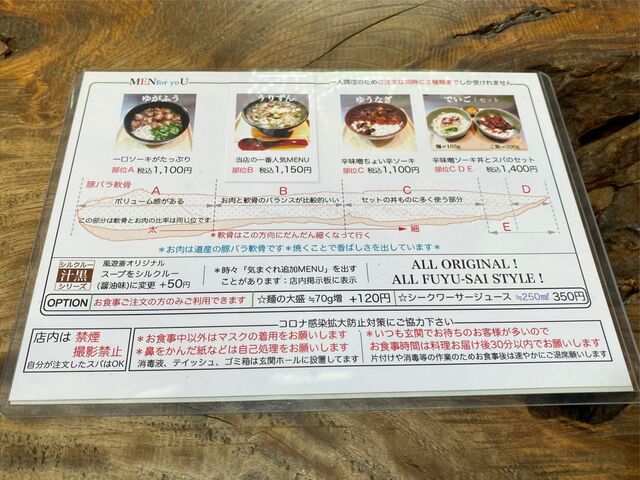 MENfor yoU
一人調理のためご注文は同時に2種類までしか受けれません
ゆがふう
うりずん
ゆうなぎ
でいごミセット
麺≒105g
ご飯≒200g
一口ソーキがたっぷり
部位A 税込1,100円
当店の一番人気MENU
部位B 税込1,150円
辛味噌ちょい辛ソーキ
部位C 税込1,100円
辛味噌ソーキ丼とスバのセット
部位C D E 税込1,400円
豚バラ軟骨
A
ボリューム感がある
B
お肉と軟骨のバランスが比較的いい
C
セットの丼ものに多く使う部分
D
E
この部分は軟骨とお肉の比率は同じ位です
太
細
*軟骨はこの方向にだんだん細くなって行く
*お肉は道産の豚バラ軟骨です*焼くことで香ばしさを出しています
シルクルー
汁黒
シリーズ
風遊斎オリジナル
スープをシルクルー
(醤油味)に変更 +50円
*時々「気まぐれ追加MENU」を出す
ことがあります:店内掲示板に表示
ALL ORIGINAL!
ALL FUYU-SAI STYLE!
OPTION お食事ご注文の方のみご利用できます
☆麺の大盛≒70g増 +120円
☆シークワーサージュース ≒250㎖ 350円
店内は 禁煙
撮影禁止
自分が注文したスバはOK
コロナ感染拡大防止対策にご協力下さい
*お食事中以外はマスクの着用をお願いします
*鼻をかんだ紙などは自己処理をお願いします
消毒液、テイッシュ、ゴミ箱は玄関ホールに設置してます
*いつも玄関でお待ちのお客様が多いので
お食事時間は料理お届け後30分以内でお願いします
片付けや消毒等の作業のためお食事後は速やかにご退席願いします